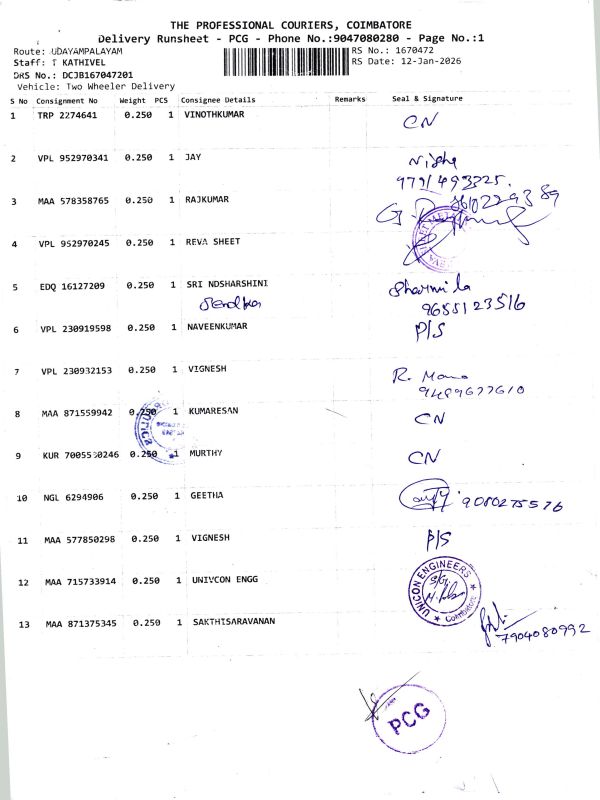 THE PROFESSIONAL COURIERS, COIMBATORE
Delivery Runsheet - PCG - Phone No.:9047080280 - Page No.:1
Route: UDAYAMPALAYAM
RS No.: 1670472
Staff: T KATHIVEL
RS Date: 12-Jan-2026
DRS No.: DCJB167047201
Vehicle: Two Wheeler Delivery
S No Consignment No Weight PCS Consignee Details Remarks Seal & Signature
1 TRP 2274641 0.250 1 VINOTHKUMAR CN
2 VPL 952970341 0.250 1 JAY Nisha
9791493325.
3 MAA 578358765 0.250 1 RAJKUMAR
4 VPL 952970245 0.250 1 REVA SHEET
5 EDQ 16127209 0.250 1 SRI NDSHARSHINI Sharmila
9655123516
6 VPL 230919598 0.250 1 NAVEENKUMAR P/S
7 VPL 230932153 0.250 1 VIGNESH R. Mano
9489677610
8 MAA 871559942 0.250 1 KUMARESAN CN
9 KUR 7005530246 0.250 1 MURTHY CN
10 NGL 6294906 0.250 1 GEETHA 9080275576
11 MAA 577850298 0.250 1 VIGNESH P/S
12 MAA 715733914 0.250 1 UNIVCON ENGG UNICON ENGINEERS
Coimbatore
13 MAA 871375345 0.250 1 SAKTHISARAVANAN
7904080992
PCG